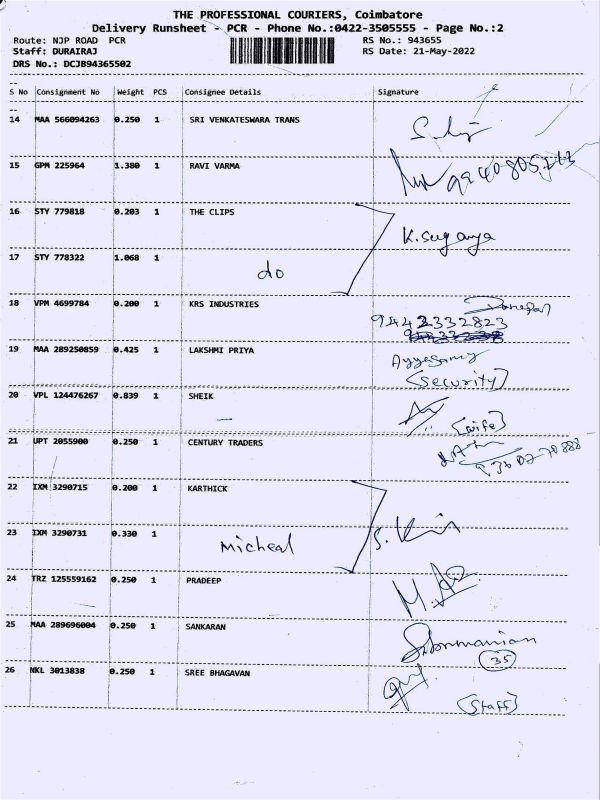 THE PROFESSIONAL COURIERS, Coimbatore
Delivery Runsheet - PCR - Phone No.:0422-3505555 - Page No.:2
Route: NJP ROAD PCR RS No.: 943655
Staff: DURAIRAJ RS Date: 21-May-2022
DRS No.: DCJB94365502
S No Consignment No Weight PCS Consignee Details Signature
14 MAA 566094263 0.250 1 SRI VENKATESWARA TRANS
15 GPM 225964 1.380 1 RAVI VARMA
16 STY 779818 0.203 1 THE CLIPS
K.suganya
17 STY 778322 1.068 1
do
18 VPM 4699784 0.200 1 KRS INDUSTRIES
9442332823
19 MAA 289250859 0.425 1 LAKSHMI PRIYA
Ayyasamy
[Security]
20 VPL 124476267 0.839 1 SHEIK
[wife]
21 UPT 2055900 0.250 1 CENTURY TRADERS
22 IXM 3290715 0.200 1 KARTHICK
23 IXM 3290731 0.330 1
Micheal
24 TRZ 125559162 0.250 1 PRADEEP
25 MAA 289696004 0.250 1 SANKARAN
35
26 NKL 3013838 0.250 1 SREE BHAGAVAN
[Staff]